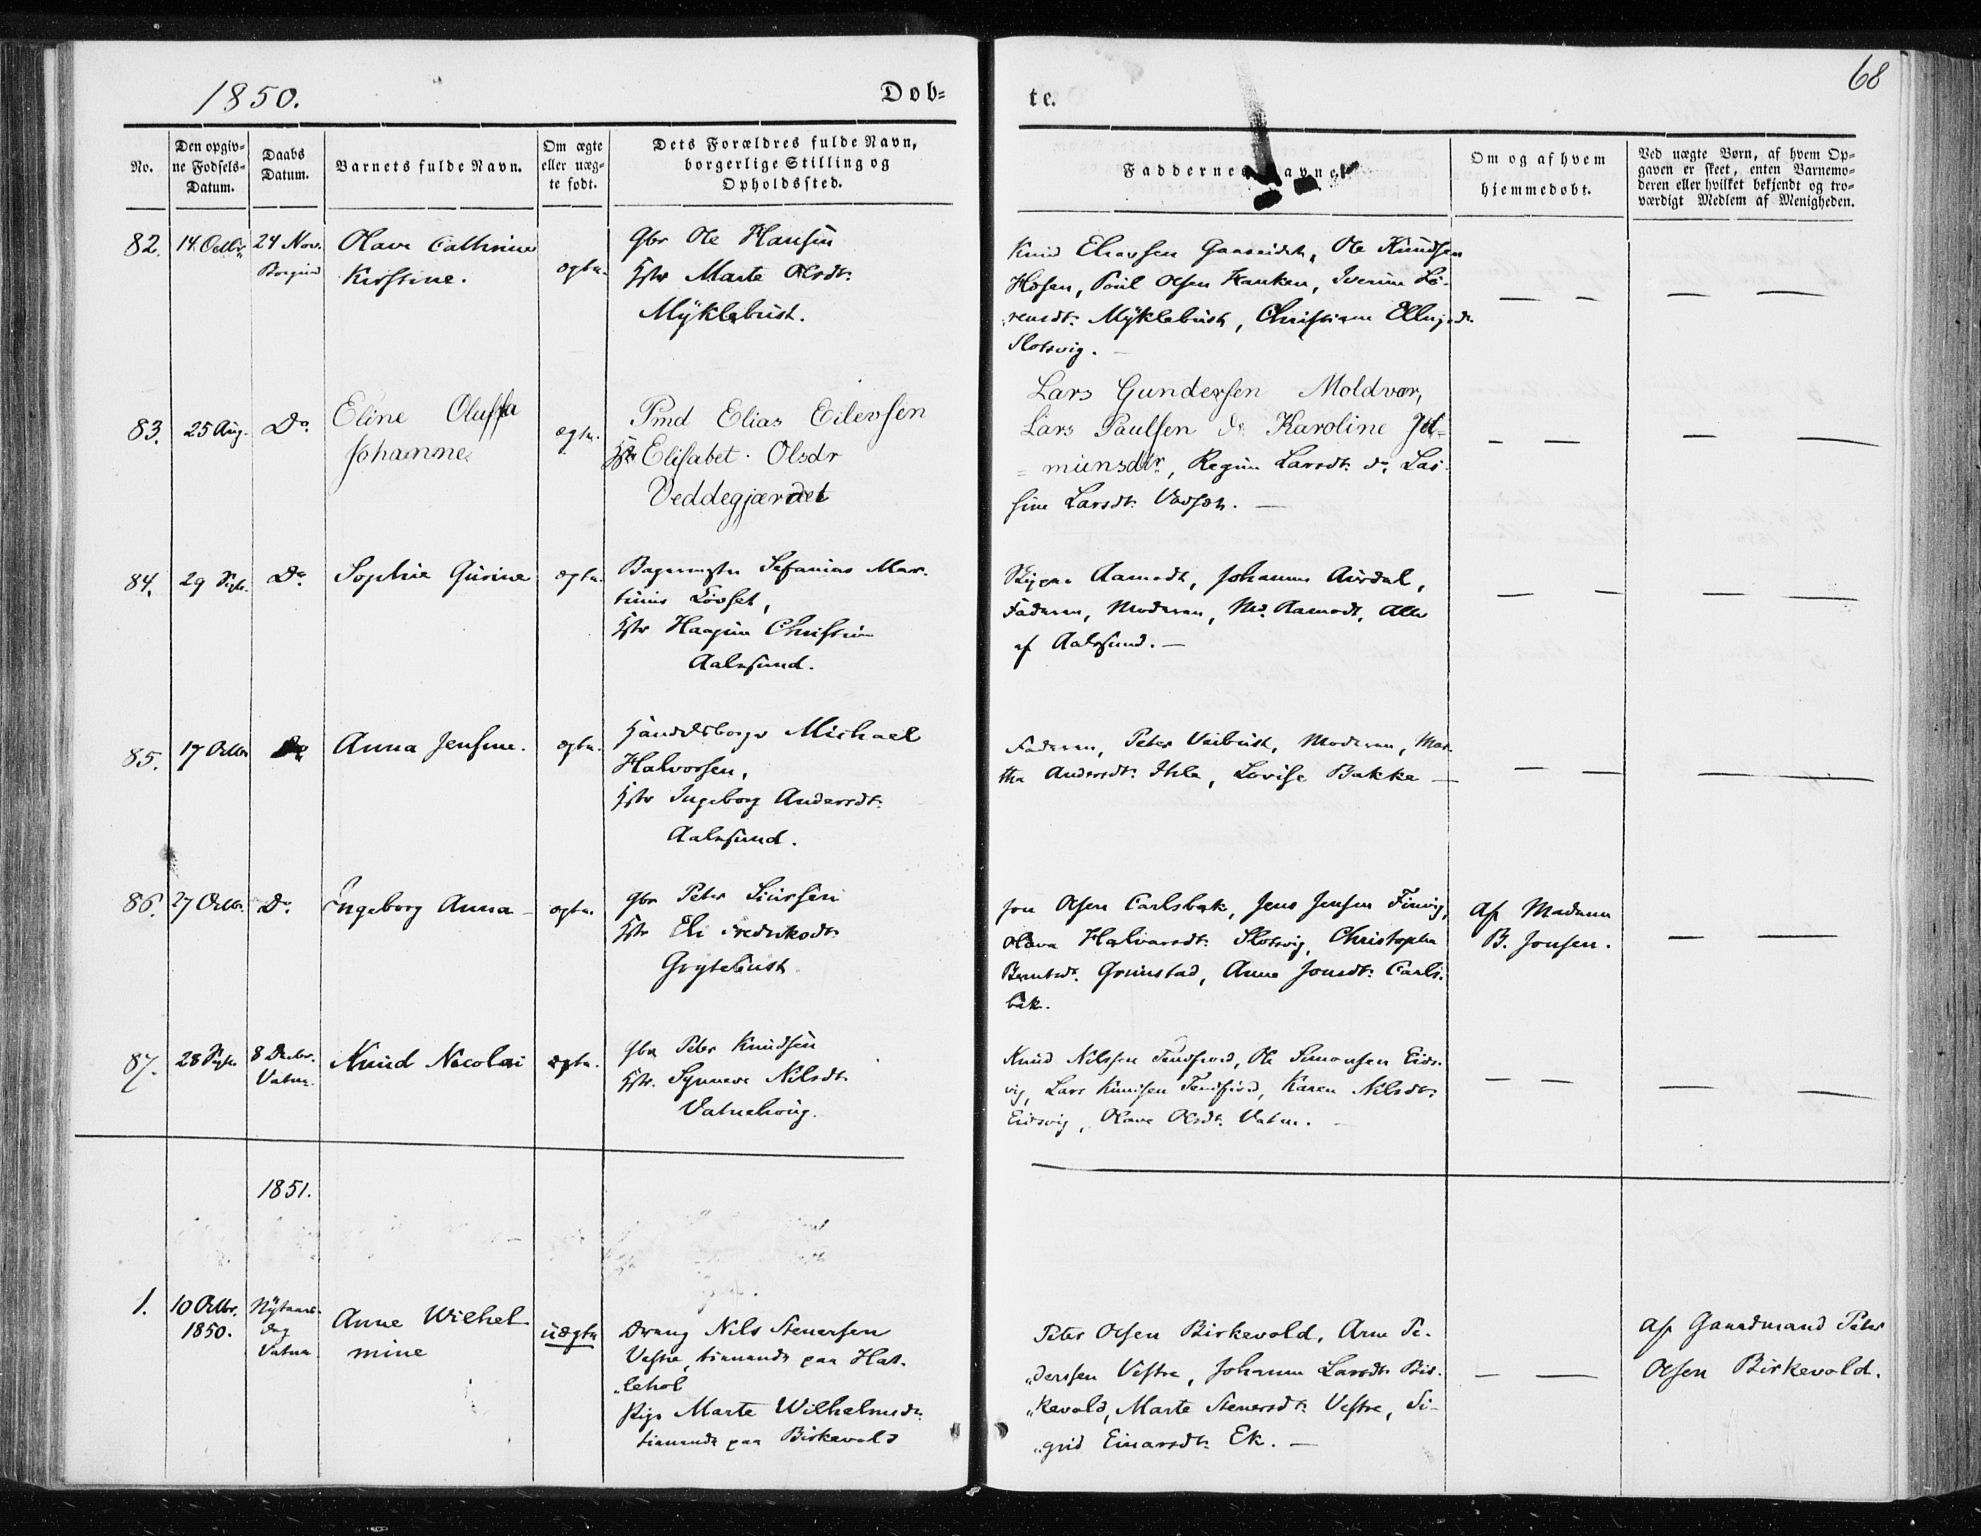 1850.
Døb-
te.
68
No.
Den opgiv-
ne Fødsels-
Datum.
Daabs
Datum.
Barnets fulde Navn.
Om ægte
eller uæg-
te født.
Dets Forældres fulde Navn,
borgerlige Stilling og
Opholdssted.
Faddernes Navne.
Om og af hvem
hjemmedøbt.
Ved uægte Børn, af hvem Op-
gaven er skeet, enten Barnemo-
deren eller hvilket bekjendt og tro-
værdigt Medlem af Menigheden.
82.
14 Octbr
24 Nov.
Borgund
Olave Cathrine
Kirstine.
ægte.
Gbr Ole Hansen
Hstr Marte Olsdt:
Myklebust.
Knud Eliassen Gaaseidet, Ole Knudsen
Hosen, Poul Olsen Hanken, Iverine Lo-
rensdt: Myklebust, Christiane Ellingsdt.
Slotsvig. —
83.
25 Aug.
Do.
Eline Oluffa
Johanne.
ægte.
Pmd Elias Eilevsen
Hstr Elisabet Olsdr
Veddegjærdet
Lars Gundersen Moldvær,
Lars Paulsen do Karoline Jet-
munsdtr, Regine Larsdt: do. Las-
sine Larsdt: Vadset. —
84.
29 Septr.
Do
Sophie Gurine
ægte.
Bagermester Sefanias Mar-
tinus Løvset,
Hstr Haagine Christine
Aalesund.
Skipper Aamodt, Johannes Aurdal,
Faderen, Moderen, Md. Aamodt, Alle
af Aalesund. —
85.
17 Octbr
Do
Anna Jensine.
ægte.
Handelsborger Michael
Halvorsen,
Hstr Ingeborg Andersdt:
Aalesund.
Faderen, Peter Veibust, Moderen, Mar-
the Andersdt: Ihle, Lovise Bakke —
86.
27 Octbr.
Do.
Ingeborg Anna
ægte.
Gbr Peter Siursen
Hstr Eli Fredriksdt:
Grytebust
Jon Olsen Carlsbak, Jens Jensen Finvig,
Olava Halvarsdt: Slotsvig, Christophe
Berntsdt. Grimstad, Anne Jonsdt: Carls-
bak.
Af Madame
B. Jonsen.
87.
28 Septr.
8 Decbr.
Vatne.
Knud Nicolai
ægte.
Gbr Peter Knudsen
Hstr. Synneve Nilsdt:
Vatnehoug.
Knud Nilssen Tenfjord, Ole Simonsen Eids-
vig, Lars Knudsen Tenfjord, Karen Nilsdt:
Eidsvig, Olave Olsdt: Vatne. —
1851.
1.
10 Octbr.
1850.
Nytaars-
dag
Vatne.
Anne Wilhel-
mine
uægte
Dreng Nils Stenersen
Vestre, tienende paa Hat-
lehol
Pige Marte Wilhelmsdt:
tienende paa Birkevold
Peter Olsen Birkevold, Arne Pe-
dersen Vestre, Johanne Larsdt: Bir-
kevold, Marte Stenersdt: Vestre, Si-
grid Einarsdt: Ek. —
Af Gaardmand Peter
Olsen Birkevold.